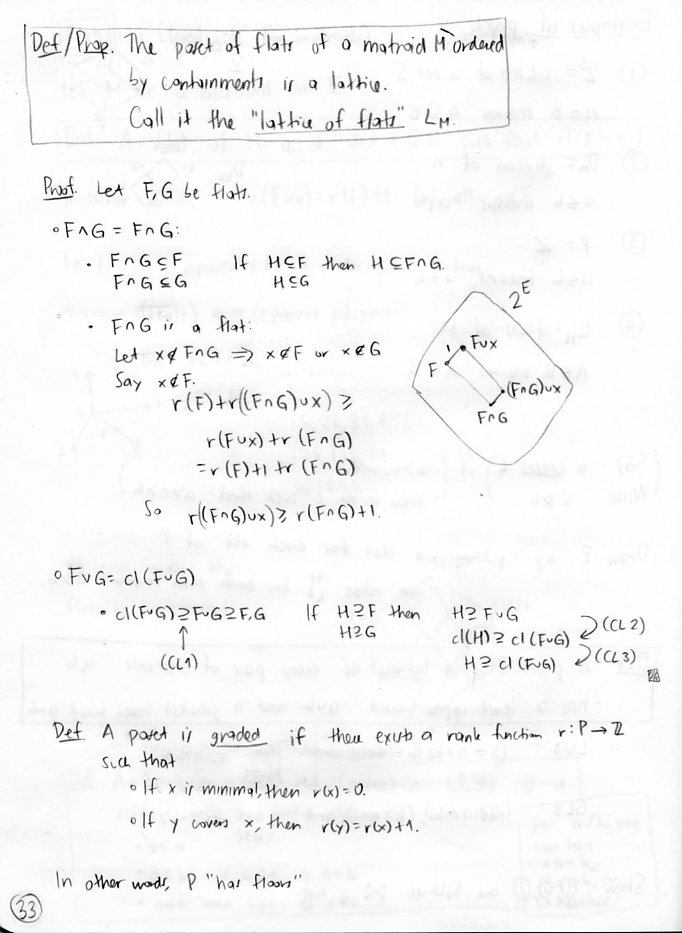 Def/Prop. The poset of flats of a matroid M ordered
by containments is a lattice.
Call it the "lattice of flats" L_M.
Proof. Let F, G be flats.
∘ F∧G = F∩G:
• F∩G ⊆ F If H⊆F then H⊆F∩G.
F∩G ⊆ G H⊆G
• F∩G is a flat:
Let x∉F∩G ⟹ x∉F or x∉G
Say x∉F.
r(F)+r((F∩G)∪x) ≥
r(F∪x)+r(F∩G)
=r(F)+1+r(F∩G)
So r((F∩G)∪x) ≥ r(F∩G)+1.
2^E
F∪x
1
F
(F∩G)∪x
F∩G
∘ F∨G = cl(F∪G)
• cl(F∪G)⊇F∪G⊇F,G If H⊇F then H⊇F∪G
H⊇G cl(H)⊇cl(F∪G) (CL2)
(CL1) H⊇cl(F∪G) (CL3)
Def A poset is graded if there exists a rank function r: P→ℤ
such that
∘ If x is minimal, then r(x)=0.
∘ If y covers x, then r(y)=r(x)+1.
In other words, P "has floors"
33